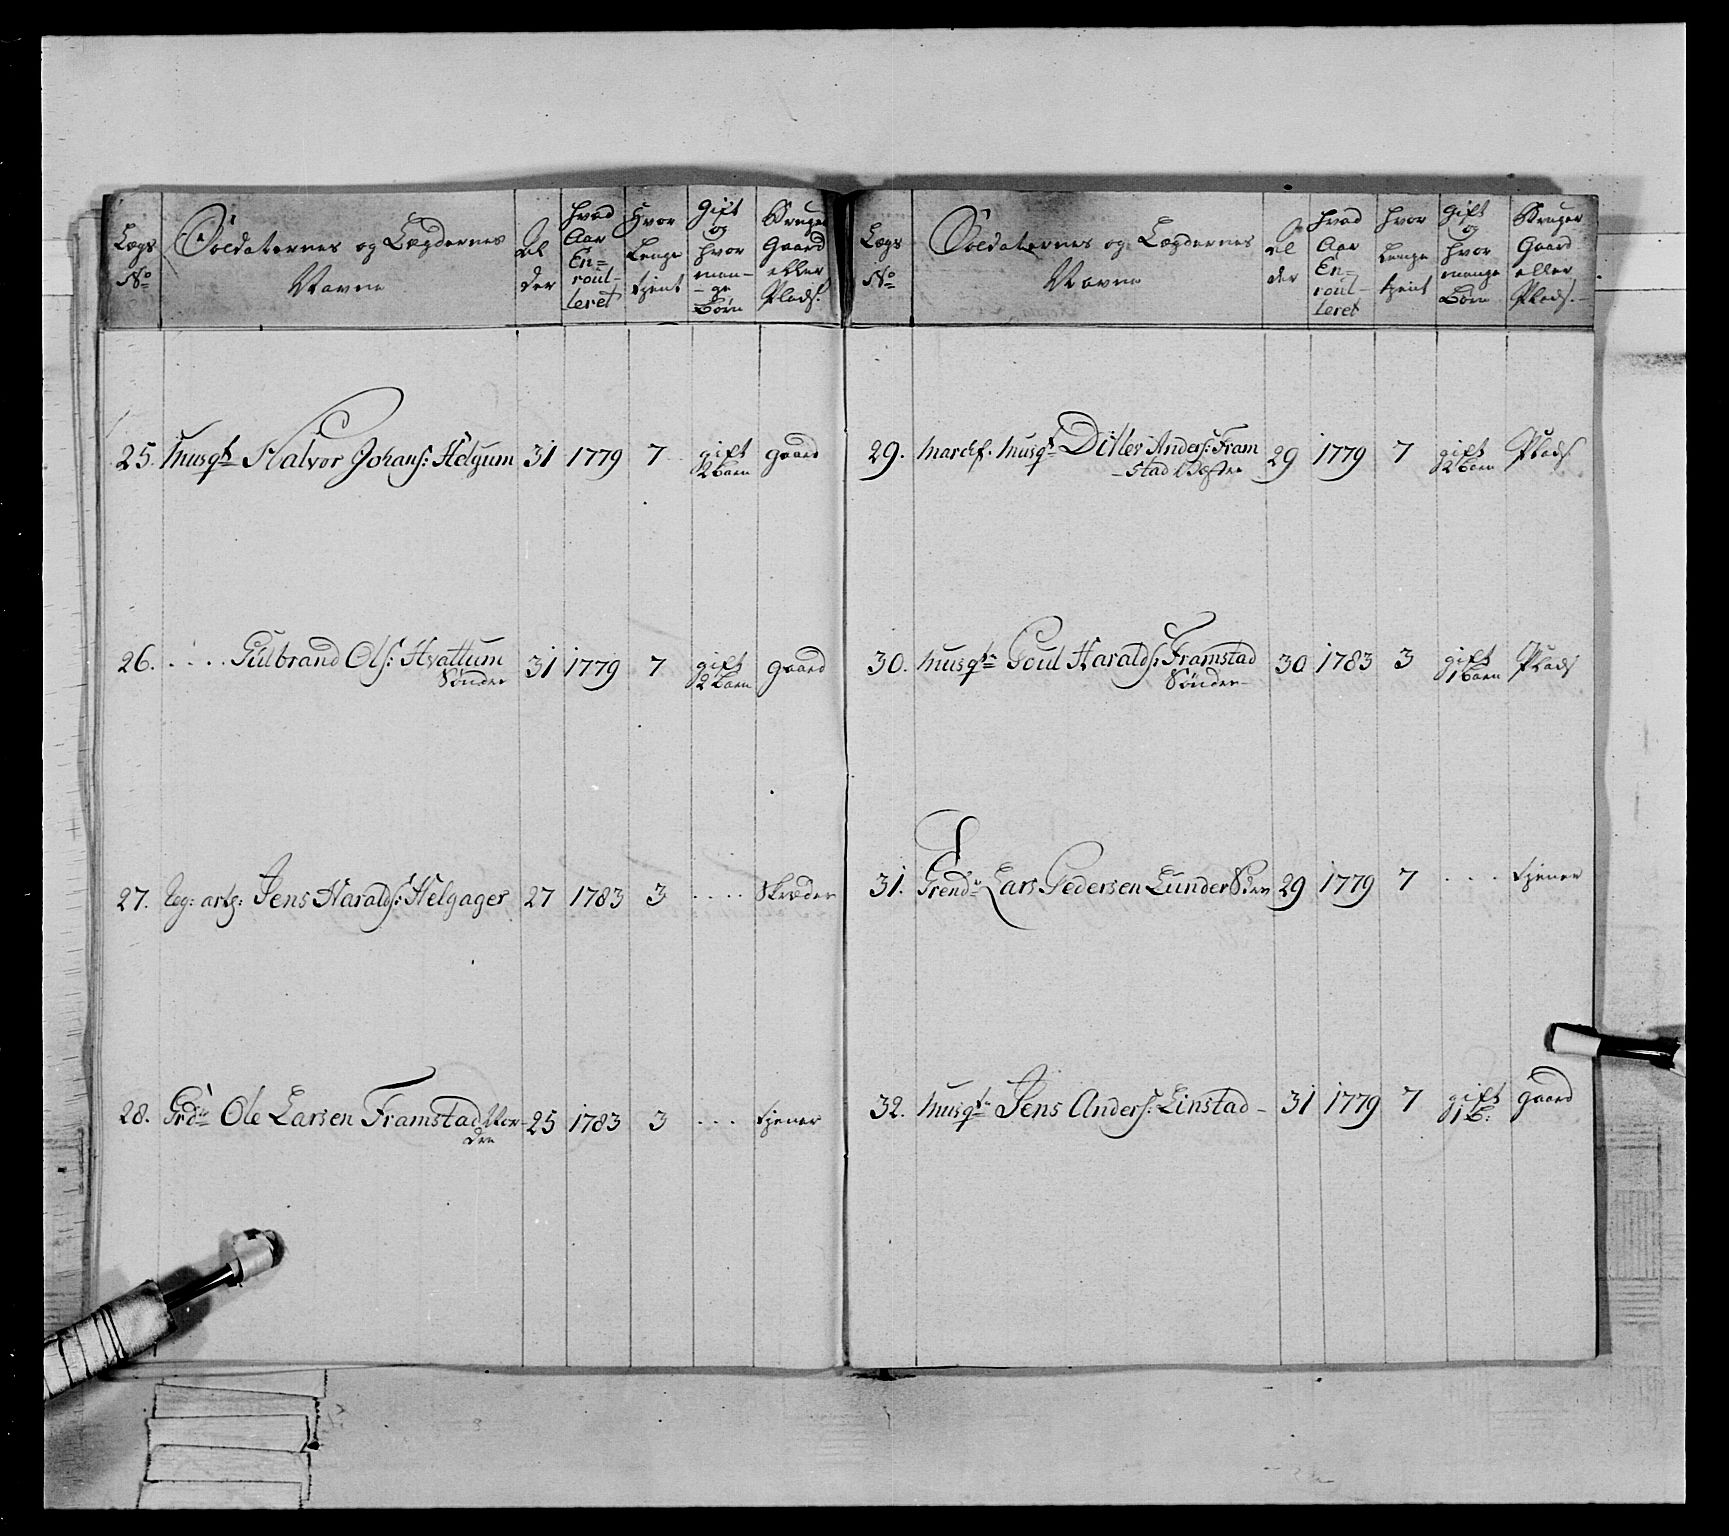 Lægs No | Soldaternes og Lægdernes Navne | Al der | hvad Aar En= roul- leret | Hvor Lenge tjent | Gift og hvor man- -ge Børn | Bruger Gaard eller Plads.
25. Musqt Halvor Johans: Helgum 31 1779 7 gift 2 barn gaard
26. .... Gulbrand Ols: Hvattum Søndre 31 1779 7 gift 2 barn gaard
27. Reg: artz: Jens Haralds: Helgager 27 1783 3 .... Skræder
28. Grdr Ole Larsen Framstad Nor- dre 25 1783 3 ... tjener
Lægs No | Soldaternes og Lægdernes Navne | Al der | hvad Aar En= roul- leret | hvor Lenge tjent | Gift og hvor mange Børn | Bruger Gaard eller Plads.
29. Musqt Ditlev Anders: Fram -stad Vestre 29 1779 7 gift 2 barn Plads
30. Musqtr Poul Haralds: Framstad Søndre 30 1783 3 gift 1 barn Plads
31. Grendr Lars Pedersen Lunder 29 1779 7 ... tjener
32. Musqtr Jens Anders: Linstad - 31 1779 7 gift 1 b: gaard